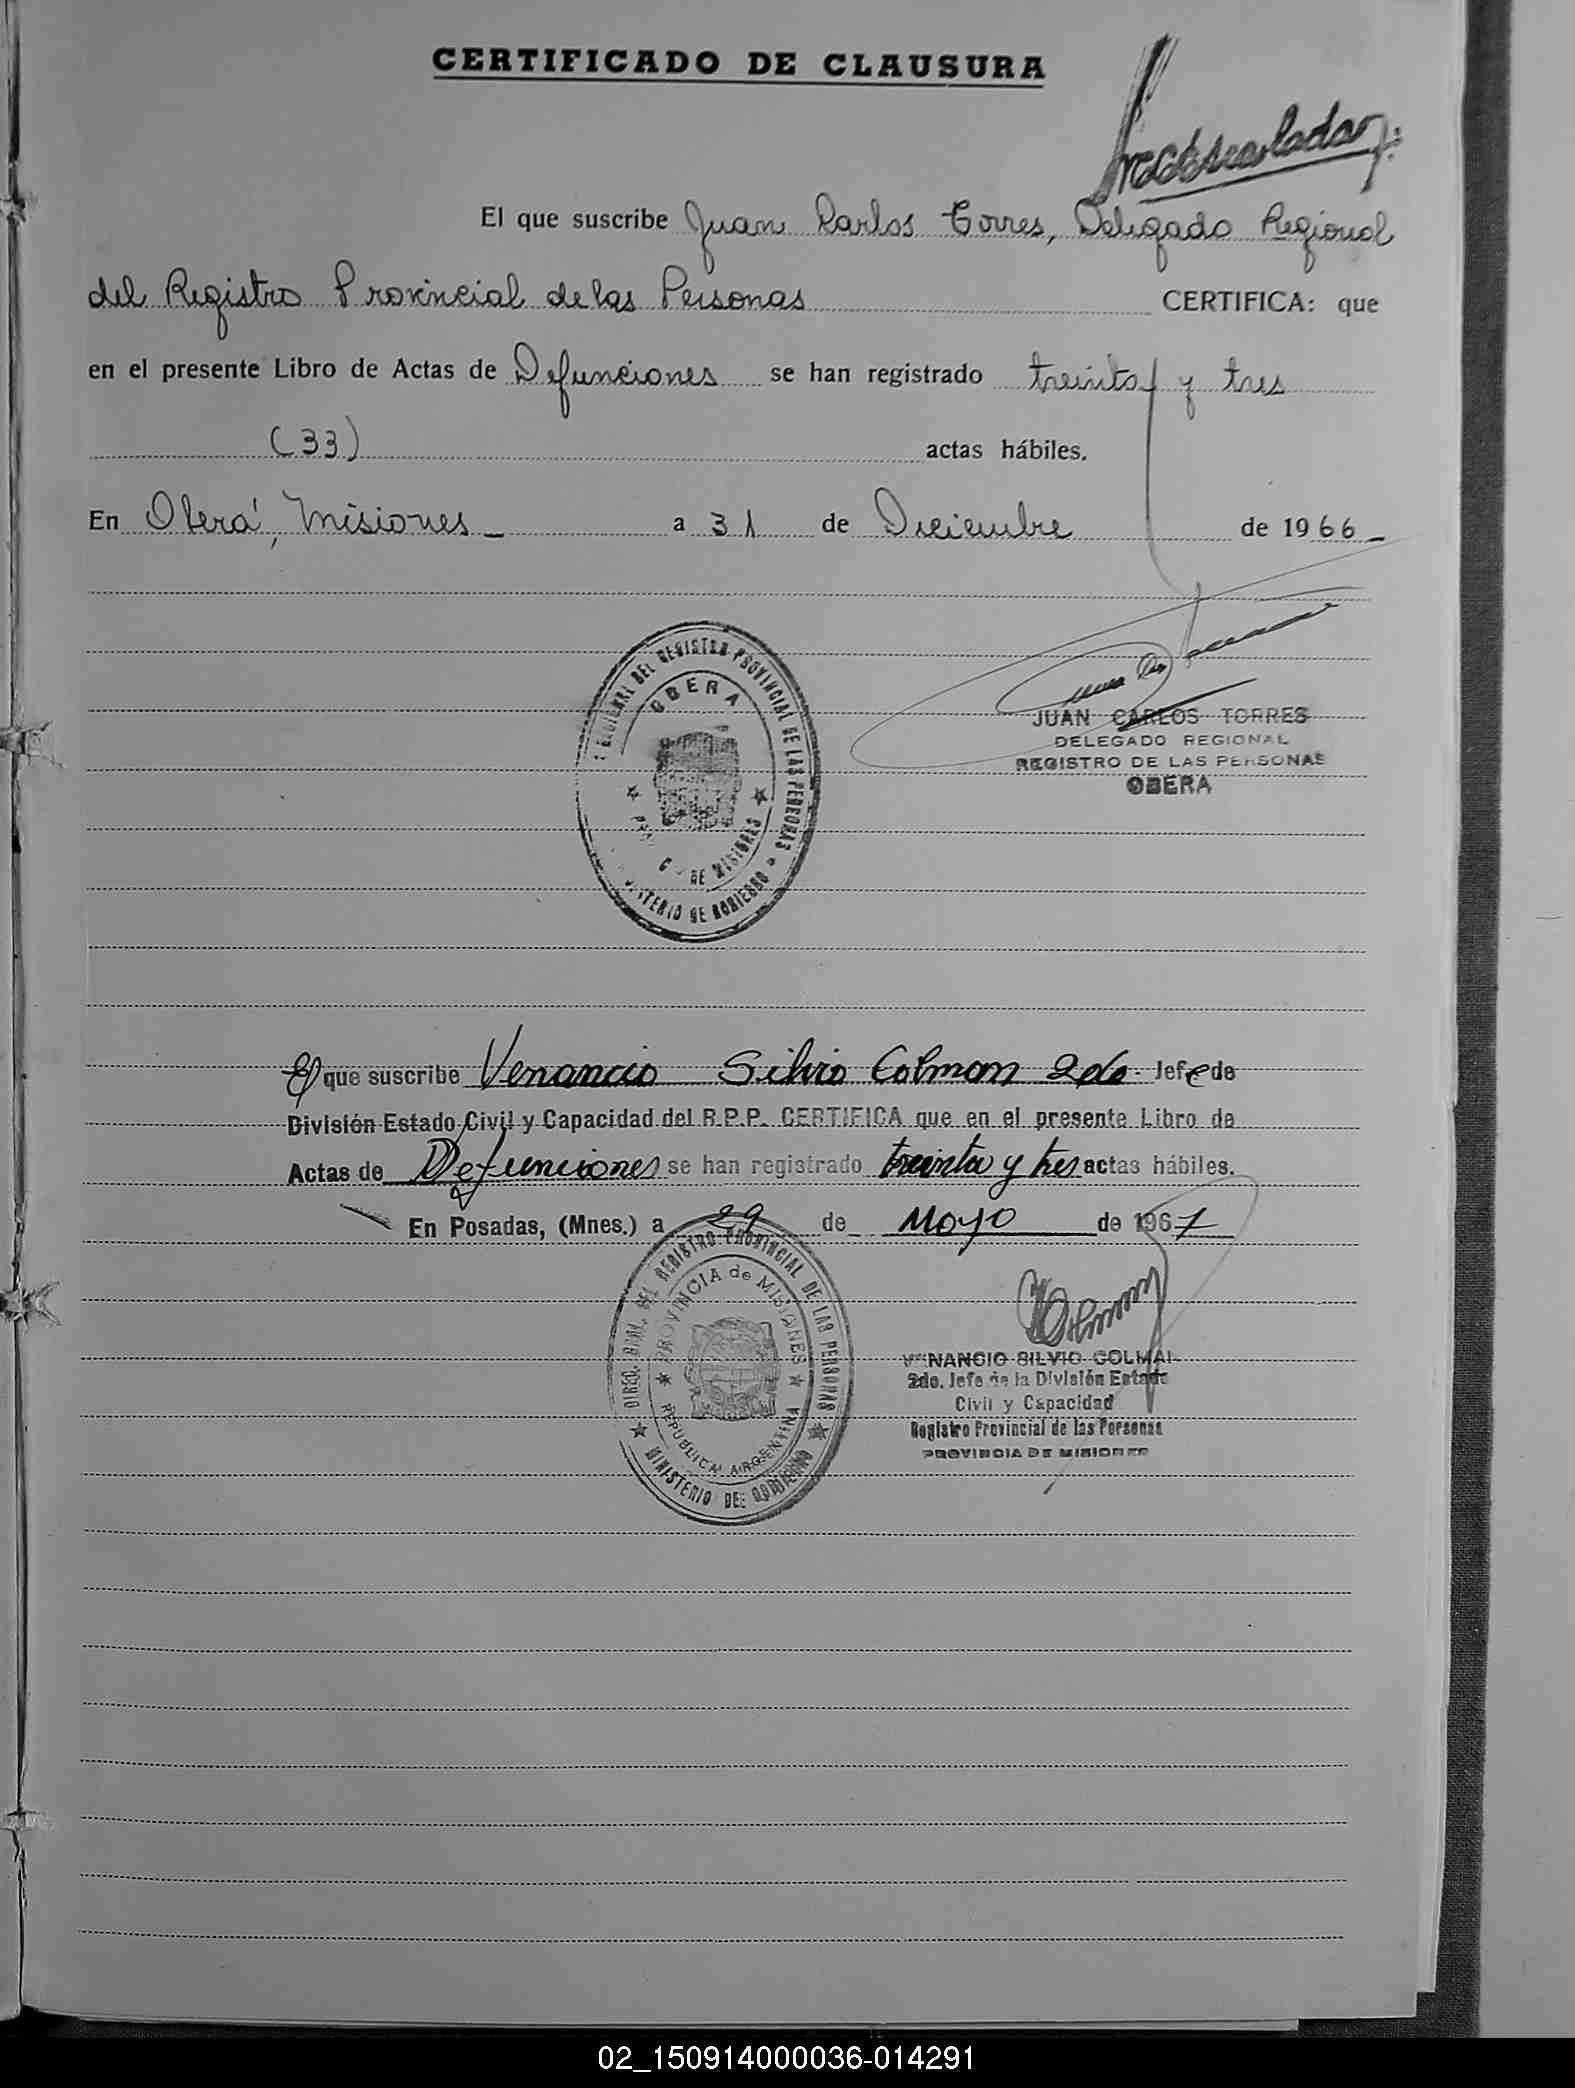 CERTIFICADO DE CLAUSURA
El que suscribe Juan Carlos Torres, Delegado Regional
del Registro Provincial de las Personas CERTIFICA: que
en el presente Libro de Actas de Defunciones se han registrado treinta y tres
(33) actas hábiles.
En Oberá, Misiones a 31 de Diciembre de 1966
REGISTRO PROVINCIAL DE LAS PERSONAS
OBERA
DE MISIONES
JUAN CARLOS TORRES
DELEGADO REGIONAL
REGISTRO DE LAS PERSONAS
OBERA
El que suscribe Venancio Silvio Colman 2do. Jefe de
División Estado Civil y Capacidad del R.P.P. CERTIFICA que en el presente Libro de
Actas de Defunciones se han registrado treinta y tres actas hábiles.
En Posadas, (Mnes.) a 29 de Mayo de 1967
DIREC. GRAL. DEL REGISTRO PROVINCIAL DE LAS PERSONAS
PROVINCIA de MISIONES
REPUBLICA ARGENTINA
MINISTERIO DE GOBIERNO
VENANCIO SILVIO COLMAN
2do. Jefe de la División Estado
Civil y Capacidad
Registro Provincial de las Personas
PROVINCIA DE MISIONES
02_150914000036-014291